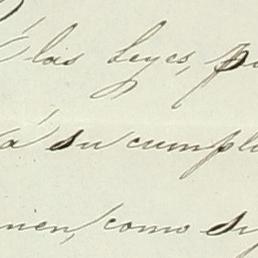 á las leyes, p
á su cumpl
nien, como su